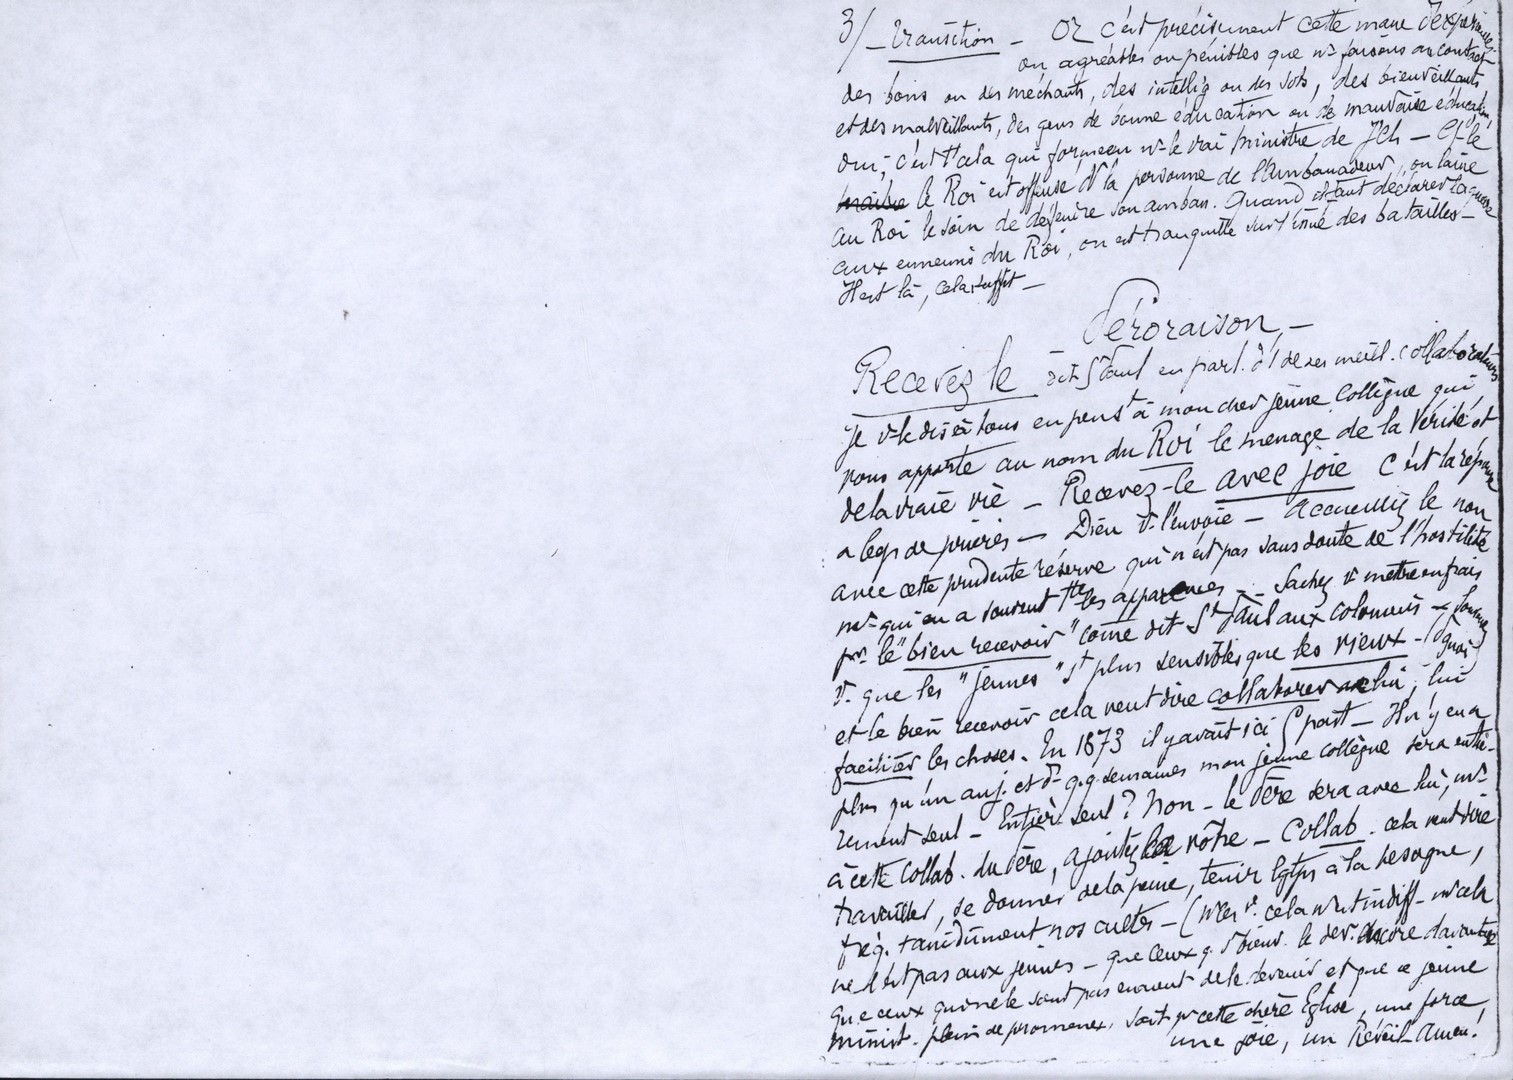 3/ - Transition - Or c'est précisément cette mane d'expériences
ou agréables ou pénibles que ns faisons au contact
des bons ou des méchants, des intellig ou des sots, des bienveillants
et des malveillants, des gens de bonne éducation ou de mauvaise éducation,
oui, c'est cela qui forme en ns le vrai ministre de JCh - Et le
le Roi est offensé ds la personne de l'Ambassadeur, on laisse
au Roi le soin de défendre son ambas. Quand il faut déclarer la guerre
aux ennemis du Roi, on est tranquille sur l'issue des batailles -
Il est là, cela suffit -
Péroraison. -
Recevez le dit St Paul en parl. d'1 de ses meill. collaborateurs
Je vs le dis à tous en penst à mon cher jeune Collègue qui
nous apporte au nom du Roi le message de la Vérité et
de la vraie vie - Recevez-le avec joie C'est la réponse
a bcp de prières - Dieu vs l'envoie - Accueillez le non
avec cette prudente réserve qui n'est pas sans doute de l'hostilité
ms qui en a souvent ttes les apparences - Sachez vs mettre en frais
pr le "bien recevoir" come dit St Paul aux colossiens -
vs que les "jeunes" st plus sensibles que les vieux -
et le bien recevoir cela veut dire collaborer avec lui, lui
faciliter les choses. En 1873 il y avait ici 5 past - Il n'y en a
plus qu'un auj. et ds q.q. semaines mon jeune collègue sera entiè-
rement seul - Entièrt seul ? Non - le Père sera avec lui, ms
à cette collab. du Père, ajoutez la vôtre - Collab. cela veut dire
travailler, se donner de la peine, tenir lgtps à la besogne,
fréq. assidûment nos cultes - ms cela
ne l'est pas aux jeunes - que ceux q. st bienv. le dev. encore davantage
que ceux qui ne le sont pas essaient de le devenir et que ce jeune
minist. plein de promesses, soit pr cette chère Eglise, une force,
une joie, un Réveil - Amen !